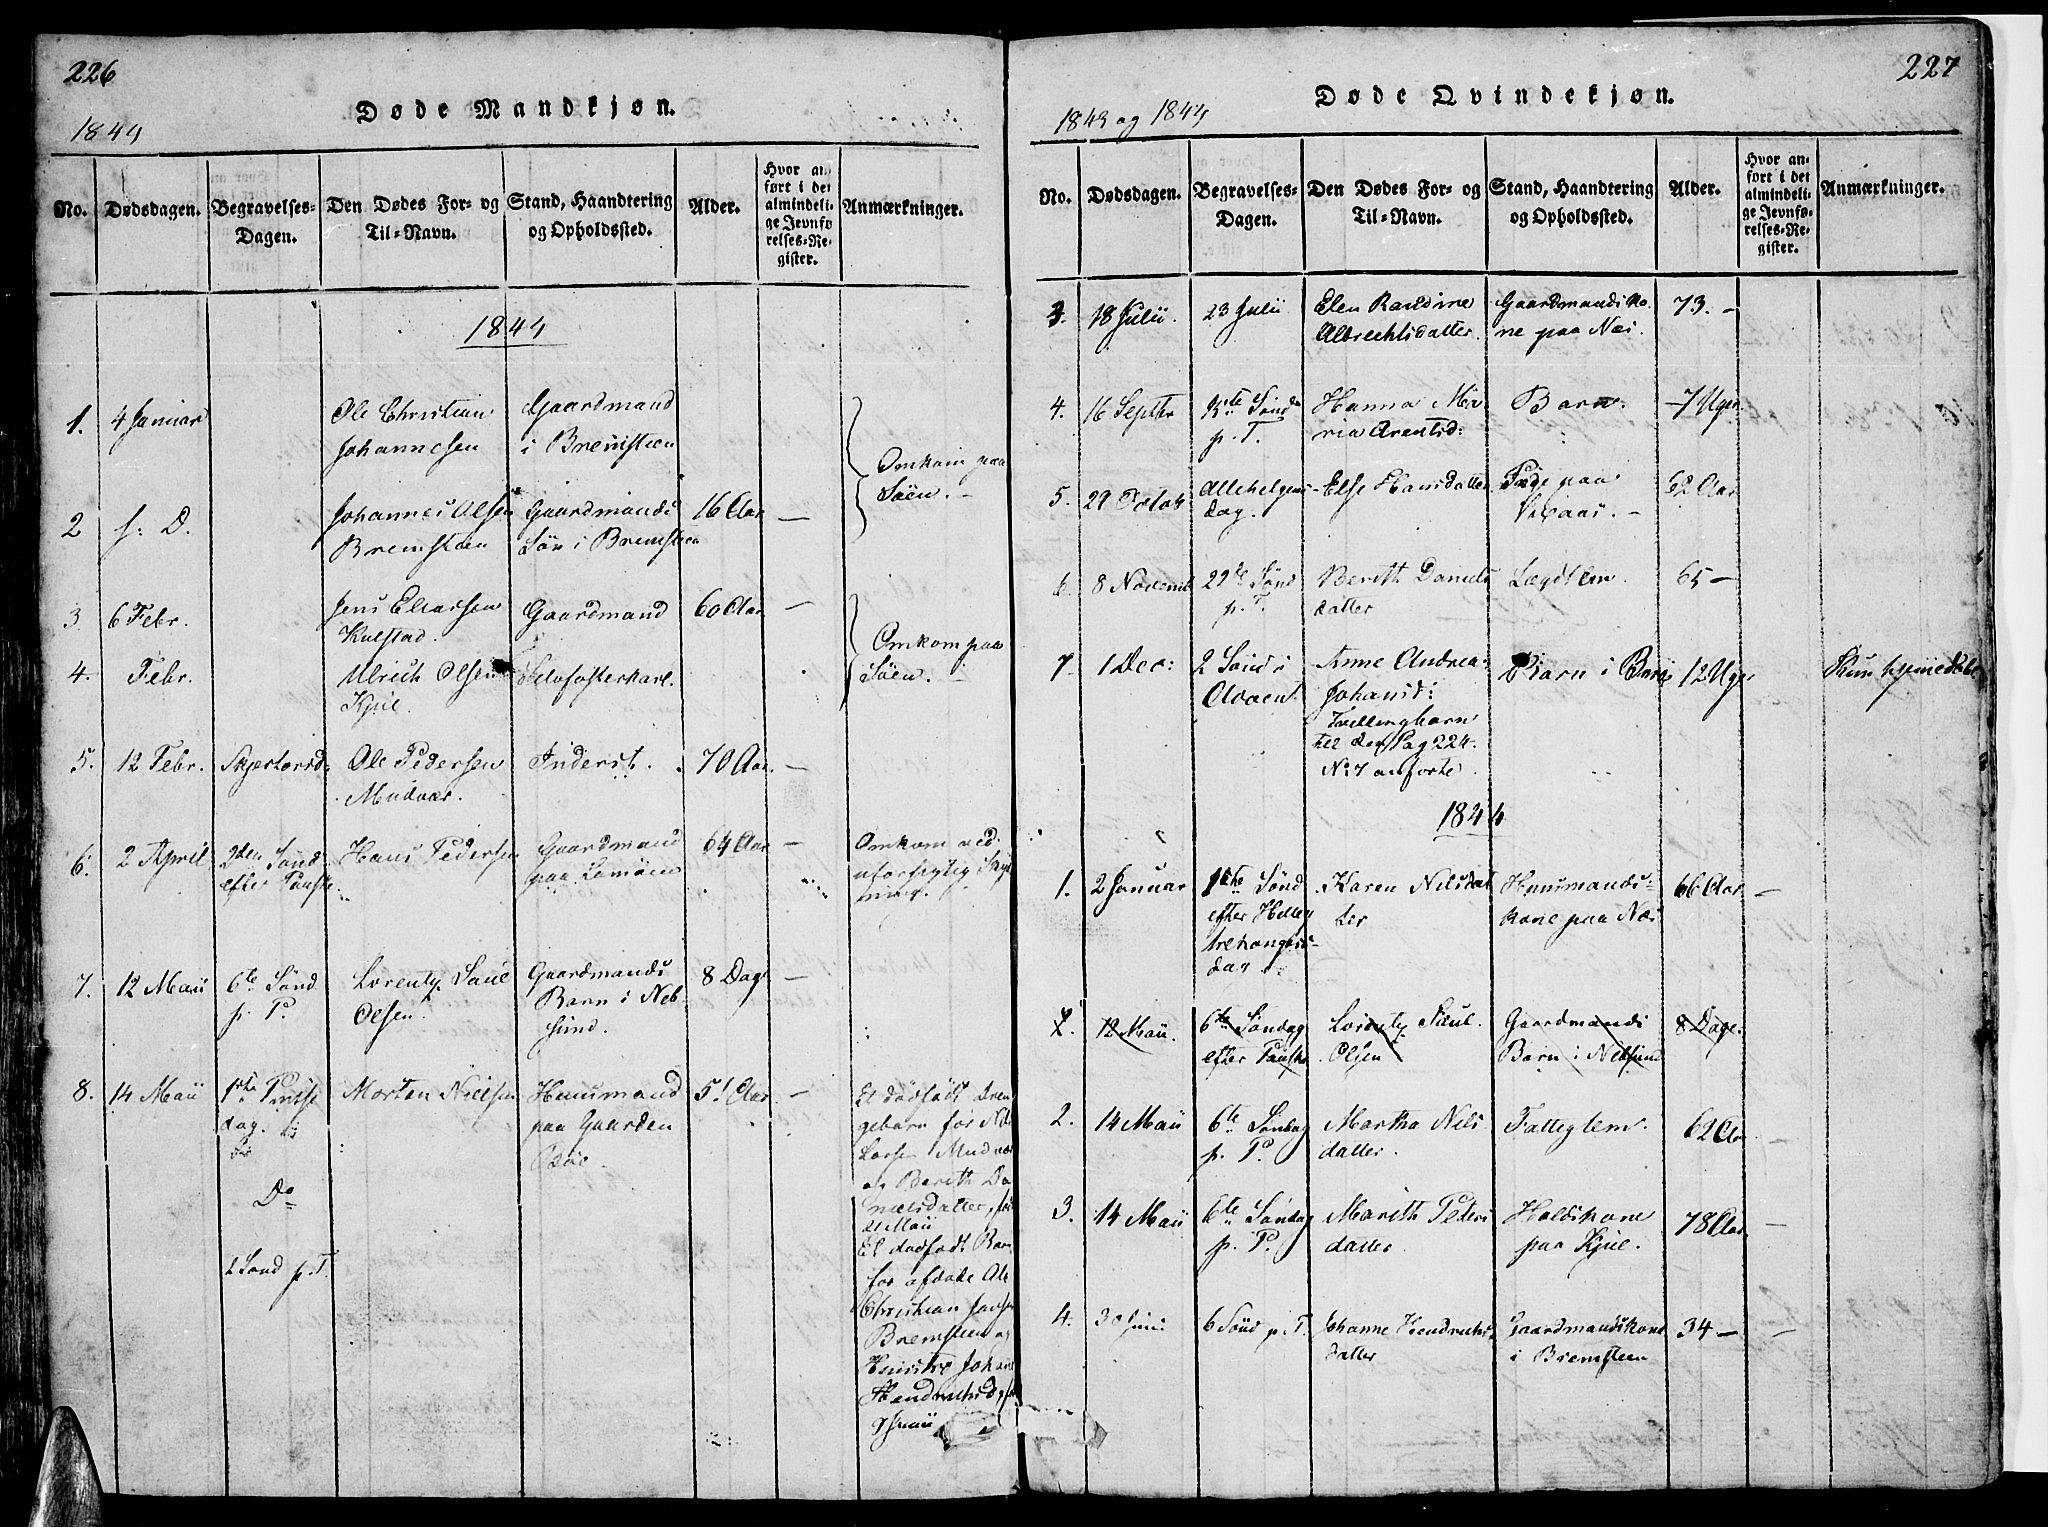 226
Døde Mandkjøn.
1844
No.
Dødsdagen.
Begravelses-
Dagen.
Den Dødes For- og
Til-Navn.
Stand, Haandtering
og Opholdssted.
Alder.
Hvor an-
ført i det
almindeli-
ge Jevnfø-
relses-Re-
gister.
Anmærkninger.
1844
1.
4 Januar
Ole Christian
Johannesen
Gaardmand
i Bremsteen
Omkom paa
Søen. -
2
s: D.
Johannes Olsen
Bremsteen
Gaardmands
Søn i Bremsteen
16 Aar
—
3
6 Febr.
Jens Eliasen
Kulstad.
Gaardmand
60 Aar
—
Omkom paa
Søen. -
4.
Febr.
Ulrich Olsen
Kjul.
Selvfosterkarl.
5.
12 Febr.
Skjertorsd:
Ole Pedersen
Mudvær.
Inderst.
70 Aar.
—
6.
2 April
2den Sønd
efter Paaske
Hans Pedersen
Gaardmand
paa Lamøen
64 Aar
—
Omkom ved
uforsigtig
7.
12 Maii
6te Sønd.
p. P.
Lorentz Paul
Olsen.
Gaardmands
Barn i Neb-
sund.
8 Dage
—
8.
14 Maii
1ste Pintse
dag.
Morten Nielsen
Huusmand
paa Gaarden
51 Aar
—
Et dødfødt Dren
gebarn for
Larsen Mudvær
og Berith Da
nielsdatter, fød
Maii
Do
2 Sønd p. T.
Et dødfødt Barn
for afdøde Ole
Christian Johansen
Bremsteen og
Hustru Johane
Hendrichsd,
227
Døde Qvindekjøn.
1843 og 1844
No.
Dødsdagen.
Begravelses-
Dagen.
Den Dødes For- og
Til-Navn.
Stand, Haandtering
og Opholdssted.
Alder.
Hvor an-
ført i det
almindeli-
ge Jevnfø-
relses-Re-
gister.
Anmærkninger.
3.
18 Julii.
23 Julii
Elen Randine
Albrechtsdatter.
Gaardmandsko-
ne paa Næs.
73. -
4.
16 Septbr
Sønd
p. T.
Hanna Ma-
ria Arentsd:
Barn.
7 Uger
5.
29 Octob
Allehelgens
dag.
Else Hansdatter
Pige paa
Vigaas. -
62 Aar
6.
8 Novemb
22de Sønd
p. T.
Berith Daniels
datter
Lægdslem.
65 —
7.
1 Dec:
2 Sønd i
Advent.
Anne Andrea
Johansd:
Tvillingbarn
til den Pag 224.
No 7 anførte.
Barn i
12 Uger
Kun hjemedøbt
1844
1.
2 Januar
1ste Sønd
efter Hellig
trekonger
dag.
Karen Nilsdat
ter
Huusmands-
kone paa Næs
66 Aar.
—
2.
12 Maii.
6te Søndag
efter Paaske
Lorentz Paul.
Olsen
Gaardmands
Barn i Nebsund
8 Dage.
2.
14 Maii
6te Søndag
p. P.
Martha Nils
datter.
Fattiglem.
62 Aar
—
3.
14 Maii
6te Søndag
p. P.
Marith Peders
datter.
Holdskone
paa Kjul.
78 Aar.
—
4.
30 Juni
6 Sønd p. T.
Johanne Hendrichs
datter
Gaardmandskone
i Bremsteen
34 —
—